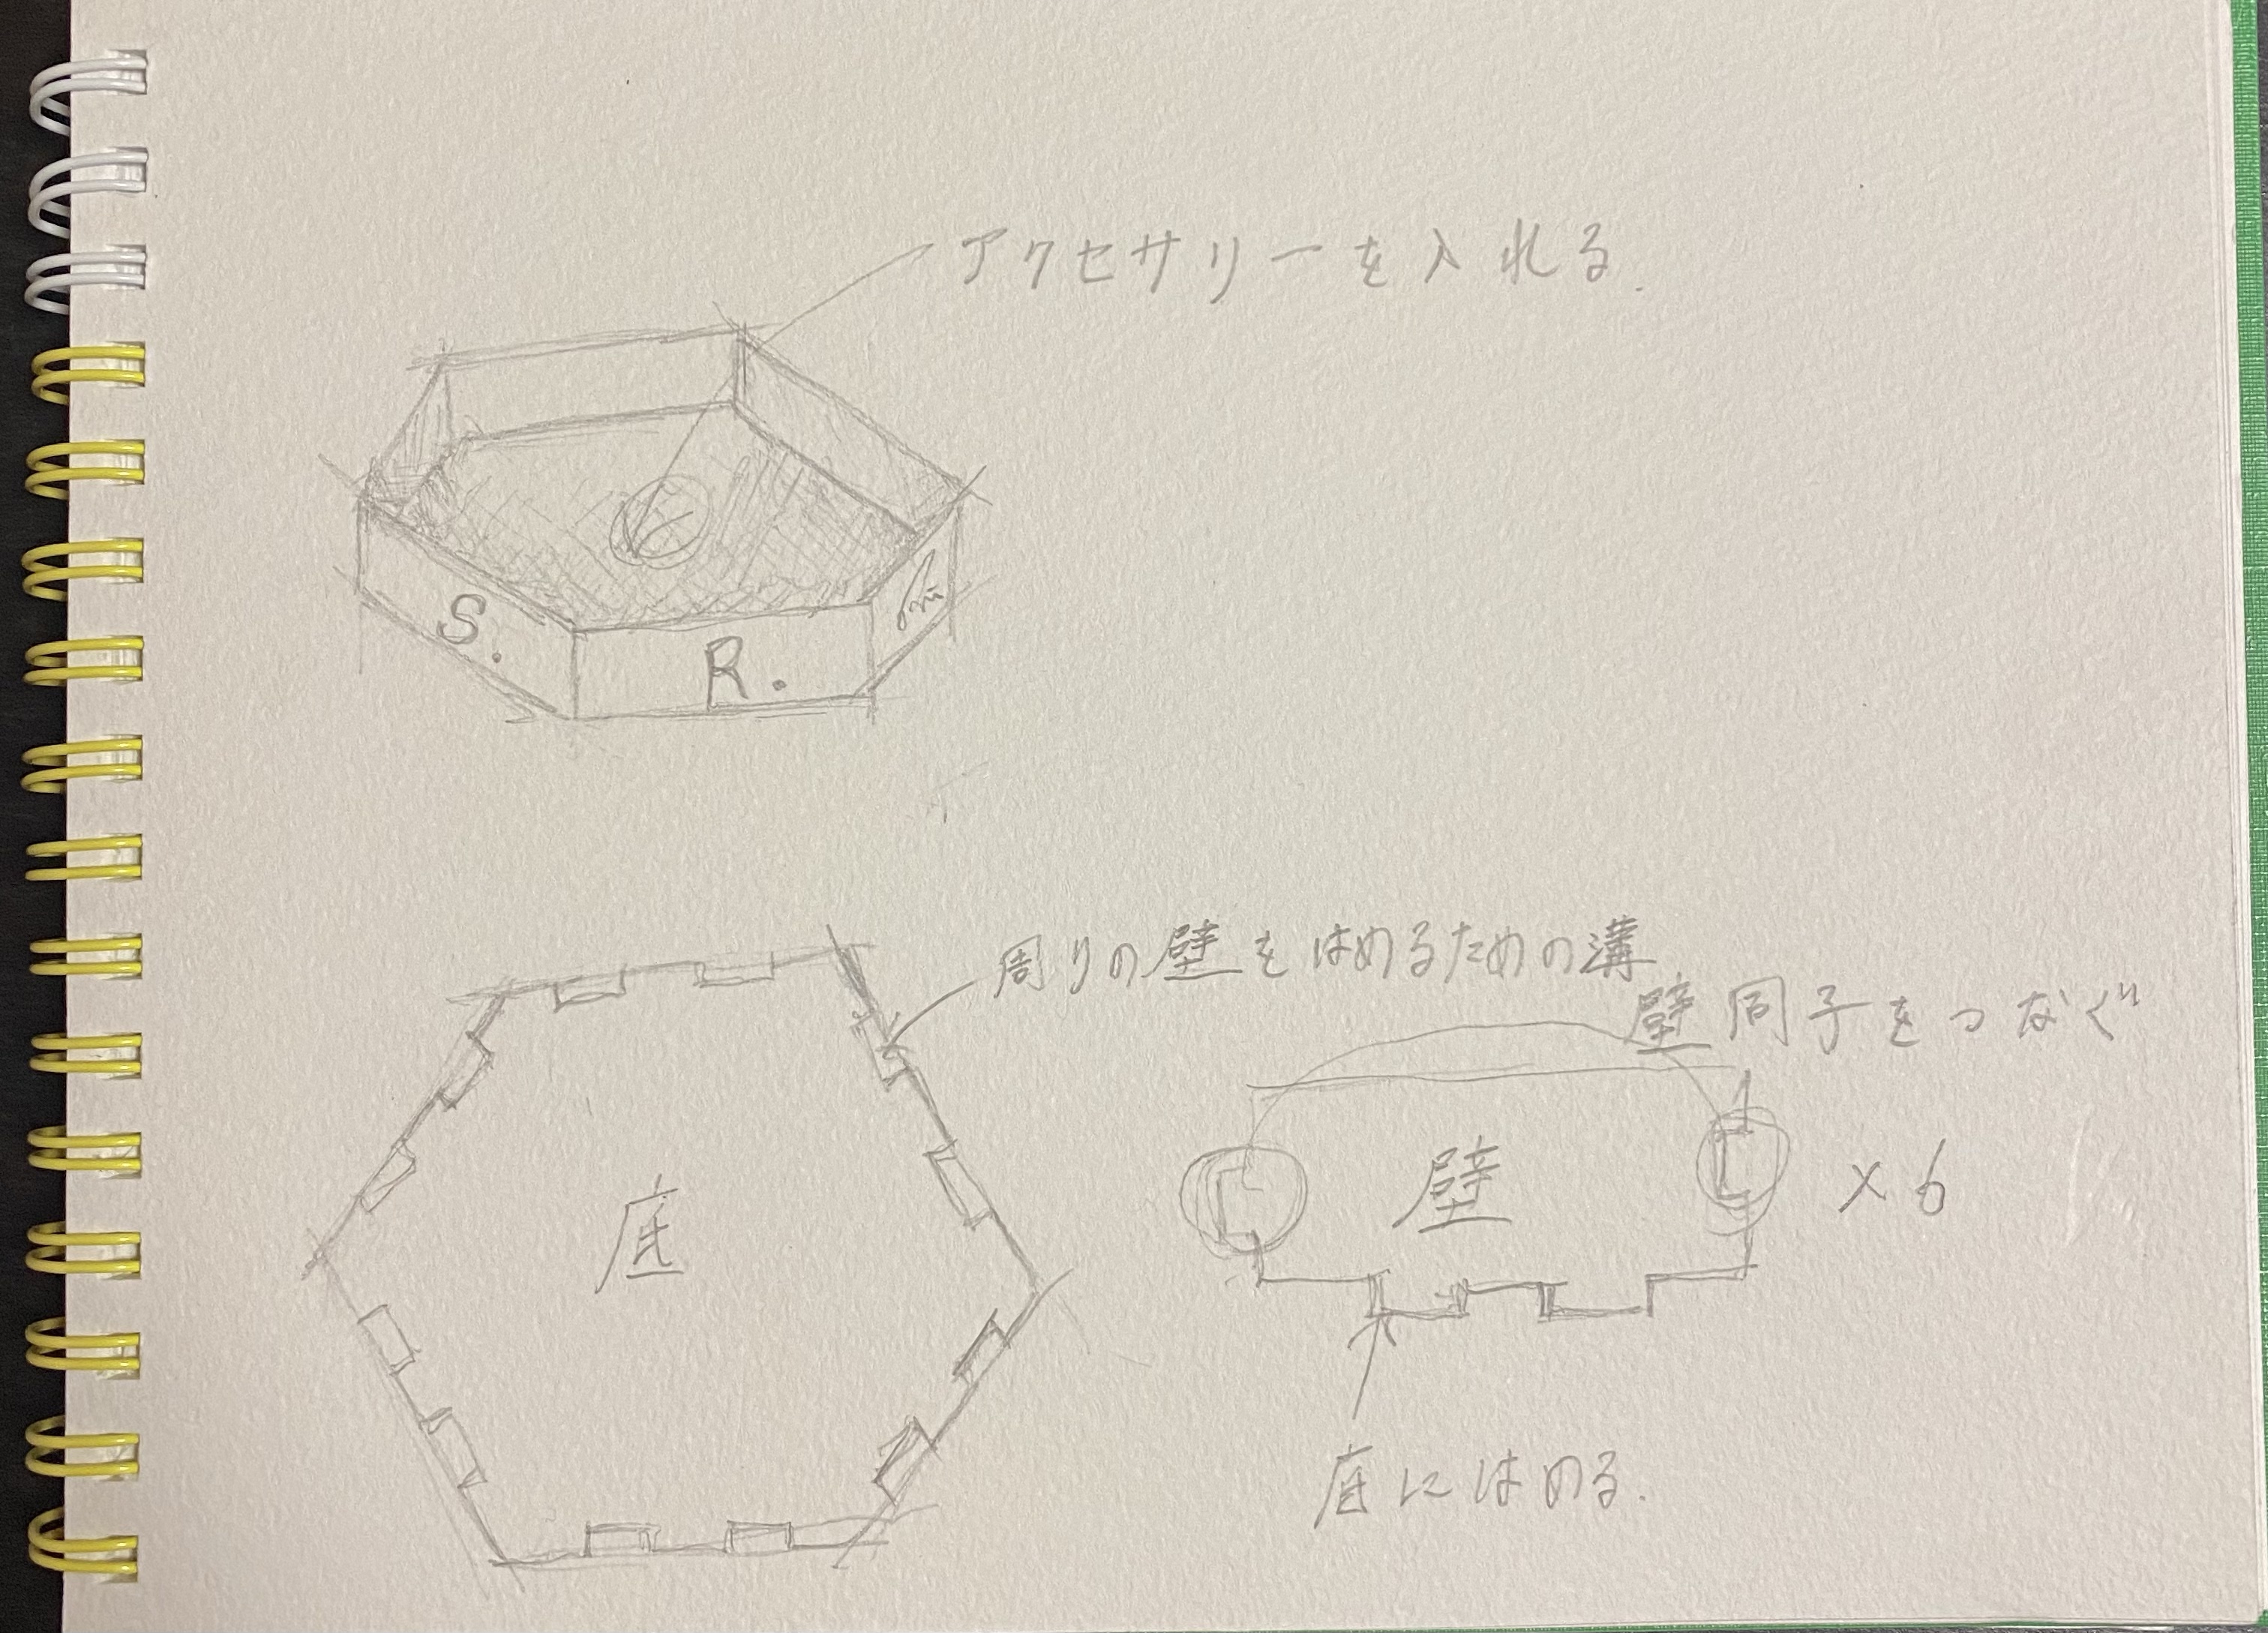 アクセサリーを入れる.
S.
R.
周りの壁をはめるための溝
壁同子をつなぐ
底
壁
×6
底にはめる.